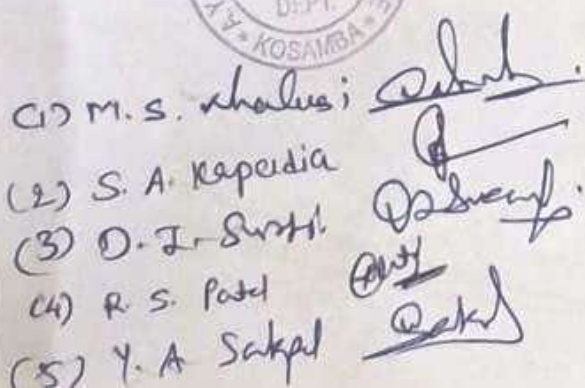 DEPT.
A.Y. * KOSAMBA *
(1) M. S. Khalusi
(2) S. A. Kapadia
(3) D. I. Surti
(4) R. S. Patel
(5) Y. A Sakpal